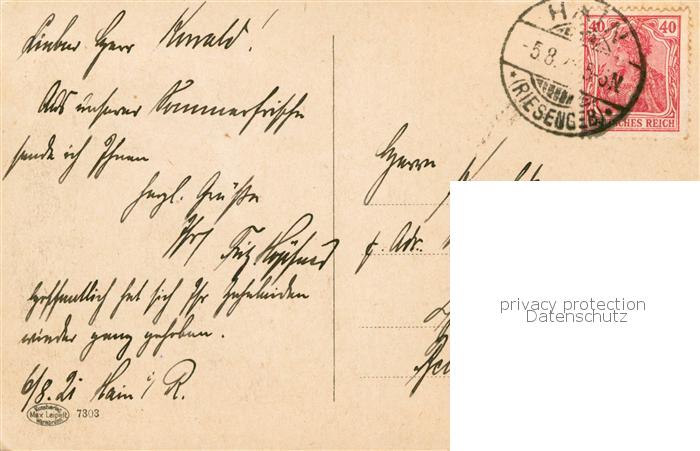 Lieber Herr Konald!
Aus unserer Sommerfrische
sende ich Ihnen
herzl. Grüße
Ihr
Fritz
Hoffentlich hat sich Ihr Zahnleiden
wieder ganz gehoben.
6/8.21 Hain i/R.
Kunstverlag
Max Leipelt
Warmbrunn
7303
HAIN
-5.8.
(RIESENGEB.)
40 40
DEUTSCHES REICH
Herrn
p. Adr.
privacy protection
Datenschutz